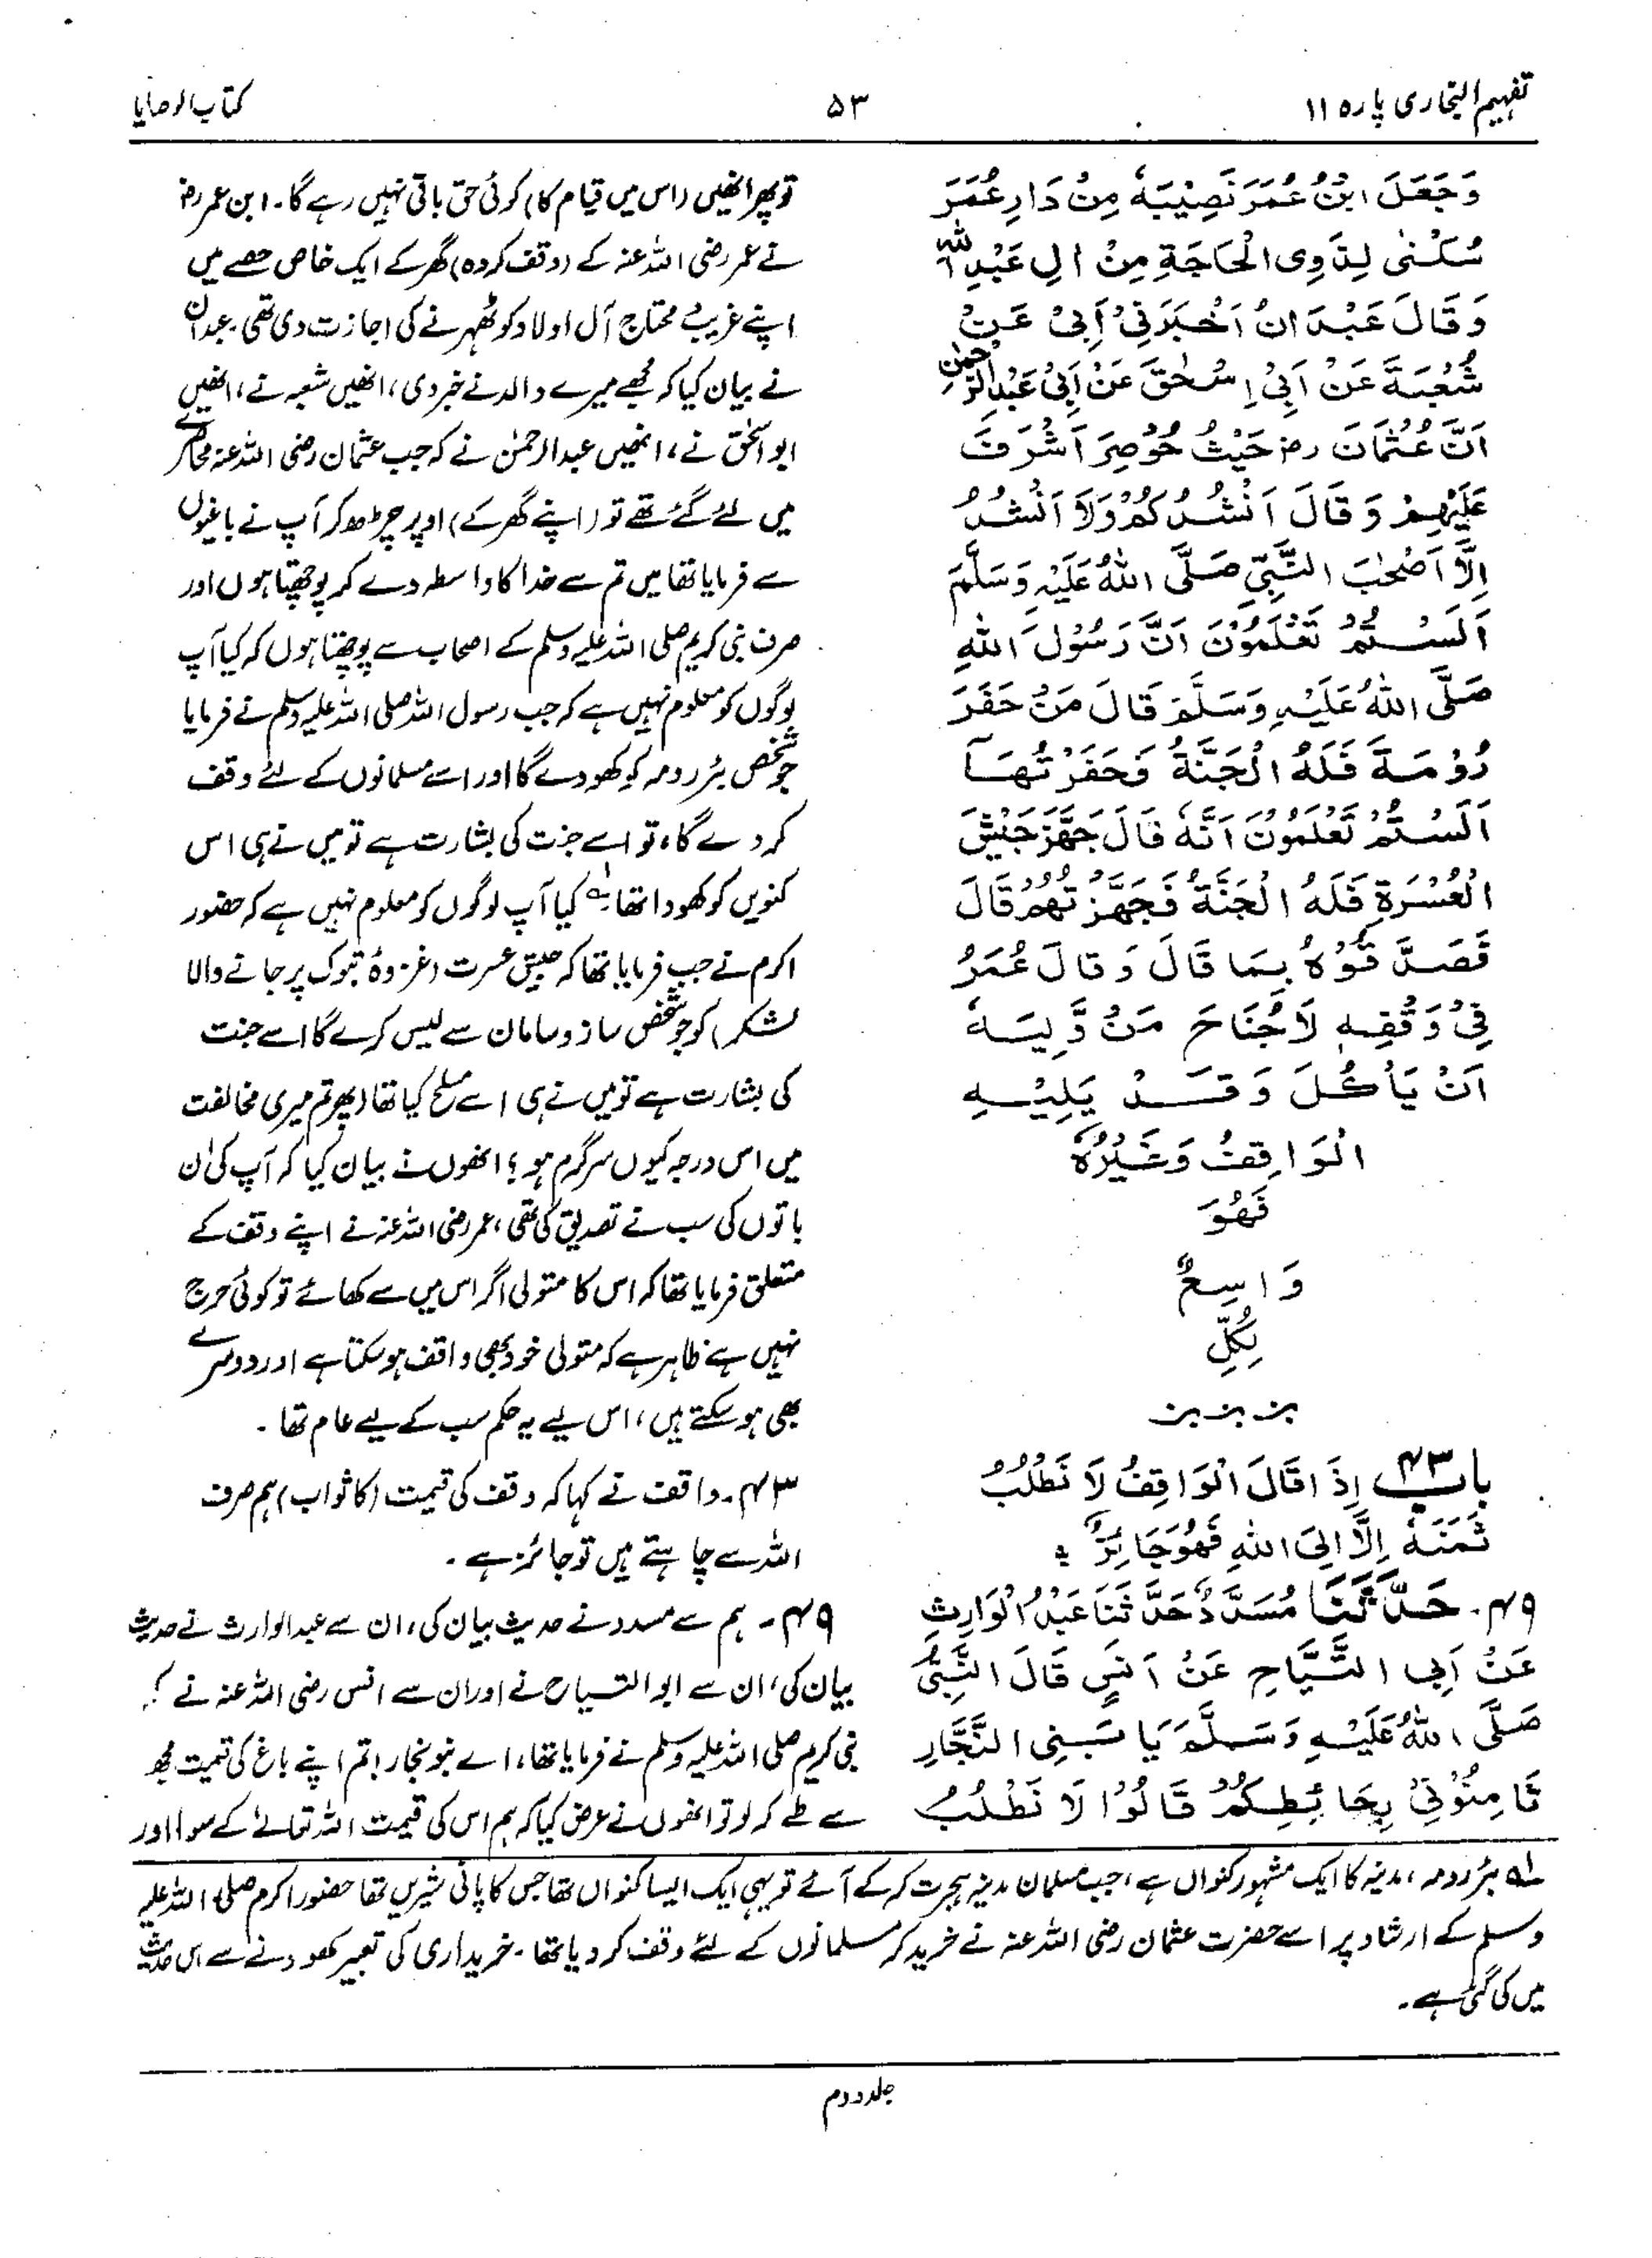 تفہیم البخاری پارہ ۱۱
۵۳
کتاب الوصایا
وَجَعَلَ ابْنُ عُمَرَ نَصِيْبَهٗ مِنْ دَارِ عُمَرَ
سُكْنٰى لِذَوِى الْحَاجَةِ مِنْ اٰلِ عَبْدِ اللهِ
وَقَالَ عَبْدَانُ اَخْبَرَنِیْ اَبِیْ عَنْ
شُعْبَةَ عَنْ اَبِیْ اِسْحٰقَ عَنْ اَبِیْ عَبْدِ الرَّحْمٰنِ
اَنَّ عُثْمَانَ رض حَيْثُ حُوْصِرَ اَشْرَفَ
عَلَيْهِمْ وَقَالَ اَنْشُدُكُمْ وَلَا اَنْشُدُ
اِلَّا اَصْحٰبَ النَّبِیِّ صَلَّى اللهُ عَلَيْهِ وَسَلَّمَ
اَلَسْتُمْ تَعْلَمُوْنَ اَنَّ رَسُوْلَ اللهِ
صَلَّى اللهُ عَلَيْهِ وَسَلَّمَ قَالَ مَنْ حَفَرَ
رُوْمَةَ فَلَهُ الْجَنَّةُ فَحَفَرْتُهَا
اَلَسْتُمْ تَعْلَمُوْنَ اَنَّهٗ قَالَ مَنْ جَهَّزَ جَيْشَ
الْعُسْرَةِ فَلَهُ الْجَنَّةُ فَجَهَّزْتُهُمْ قَالَ
فَصَدَّقُوْهُ بِمَا قَالَ وَقَالَ عُمَرُ
فِیْ وَقْفِهٖ لَا جُنَاحَ مَنْ وَّلِيَهٗ
اَنْ يَاْكُلَ وَقَدْ يَلِيْهِ
الْوَاقِفُ وَغَيْرُهٗ
فَهُوَ
وَاسِعٌ
لِكُلٍّ
باب ۴۳ اِذَا قَالَ الْوَاقِفُ لَا نَطْلُبُ
ثَمَنَهٗ اِلَّا اِلَى اللهِ فَهُوَ جَائِزٌ
۴۹۔ حَدَّثَنَا مُسَدَّدٌ حَدَّثَنَا عَبْدُ الْوَارِثِ
عَنْ اَبِی التَّيَّاحِ عَنْ اَنَسٍ قَالَ النَّبِیُّ
صَلَّى اللهُ عَلَيْهِ وَسَلَّمَ يَا بَنِی النَّجَّارِ
ثَامِنُوْنِیْ بِحَائِطِكُمْ قَالُوْا لَا نَطْلُبُ
تو پھر انھیں (اس میں قیام کا) کوئی حق باقی نہیں رہے گا۔ ابن عمر رض
نے عمر رضی اللہ عنہ کے (وقف کردہ) گھر کے ایک خاص حصے میں
اپنے غریب محتاج آل اولاد کو ٹھہرنے کی اجازت دی تھی۔ عبدان
نے بیان کیا کہ مجھے میرے والد نے خبر دی، انھیں شعبہ نے، انھیں
ابو اسحٰق نے، انھیں عبدالرحمٰن نے کہ جب عثمان رضی اللہ عنہ محاصرے
میں لئے گئے تھے تو (اپنے گھر کے) اوپر چڑھ کر آپ نے باغیوں
سے فرمایا تھا میں تم سے خدا کا واسطہ دے کر پوچھتا ہوں اور
صرف نبی کریم صلی اللہ علیہ وسلم کے اصحاب سے پوچھتا ہوں کہ کیا آپ
لوگوں کو معلوم نہیں ہے کہ جب رسول اللہ صلی اللہ علیہ وسلم نے فرمایا
جو شخص بئر رومہ کو کھودے گا اور اسے مسلمانوں کے لئے وقف
کر دے گا، تو اسے جنت کی بشارت ہے تو میں نے ہی اس
کنویں کو کھودا تھا؟ لہ کیا آپ لوگوں کو معلوم نہیں ہے کہ حضور
اکرم نے جب فرمایا تھا کہ جیش عسرت (غزوۂ تبوک پر جانے والا
لشکر) کو جو شخص ساز و سامان سے لیس کرے گا اسے جنت
کی بشارت ہے تو میں نے ہی اسے مسلح کیا تھا (پھر تم میری مخالفت
میں اس درجہ کیوں سرگرم ہو؟ انھوں نے بیان کیا کہ آپ کی ان
باتوں کی سب نے تصدیق کی تھی، عمر رضی اللہ عنہ نے اپنے وقف کے
متعلق فرمایا تھا کہ اس کا متولی اگر اس میں سے کھائے تو کوئی حرج
نہیں ہے ظاہر ہے کہ متولی خود بھی واقف ہو سکتا ہے اور دوسرے
بھی ہو سکتے ہیں، اس لیے یہ حکم سب کے لیے عام تھا۔
۴۳۔ واقف نے کہا کہ وقف کی قیمت (کا ثواب) ہم صرف
اللہ سے چاہتے ہیں تو جائز ہے۔
۴۹۔ ہم سے مسدد نے حدیث بیان کی، ان سے عبدالوارث نے حدیث
بیان کی، ان سے ابو التیاح نے اور ان سے انس رضی اللہ عنہ نے کہ
نبی کریم صلی اللہ علیہ وسلم نے فرمایا تھا، اے بنو نجار! تم اپنے باغ کی قیمت مجھ
سے طے کر لو تو انھوں نے عرض کیا کہ ہم اس کی قیمت اللہ تعالےٰ کے سوا اور
لہ بئر رومہ، مدینہ کا ایک مشہور کنواں ہے، جب مسلمان مدینہ ہجرت کر کے آئے تو یہی ایک ایسا کنواں تھا جس کا پانی شیریں تھا حضور اکرم صلی اللہ علیہ
وسلم کے ارشاد پر اسے حضرت عثمان رضی اللہ عنہ نے خرید کر مسلمانوں کے لئے وقف کر دیا تھا۔ خریداری کی تعبیر کھودنے سے اس حدیث
میں کی گئی ہے۔
جلد دوم